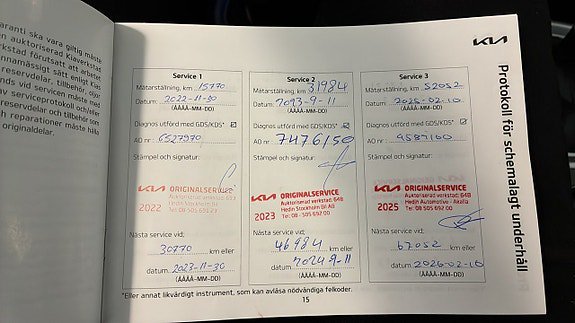 aranti ska vara giltig måste
en auktoriserad Kiaverkstad
rkstad förutsatt att arbetet
nnamässigt sätt enligt Kias
reservdelar, tillbehör, oljor
nds vid servicen måste med
v serviceprotokoll och/eller
eservdelar och tillbehör som
ch reparationer måste hålla
originaldelar.
KIA
Protokoll för schemalagt underhåll
Service 1
Mätarställning, km 15770
Datum: 2022-11-30
(ÅÅÅÅ-MM-DD)
Diagnos utförd med GDS/KDS*
AO nr: 6527970
Stämpel och signatur:
KIA ORIGINALSERVICE
2022
Nästa service vid:
30770 km eller
datum 2023-11-30
(ÅÅÅÅ-MM-DD)
Service 2
Mätarställning, km 31984
Datum: 2023-9-11
(ÅÅÅÅ-MM-DD)
Diagnos utförd med GDS/KDS*
AO nr: 7476150
Stämpel och signatur:
KIA ORIGINALSERVICE
Auktoriserad verkstad: 648
Hedin Stockholm Bil AB
2023 Tel: 08 - 505 692 00
Nästa service vid:
46984 km eller
datum 2024-9-11
(ÅÅÅÅ-MM-DD)
Service 3
Mätarställning, km 52052
Datum: 2025-02-10
(ÅÅÅÅ-MM-DD)
Diagnos utförd med GDS/KDS*
AO nr: 9587160
Stämpel och signatur:
KIA ORIGINALSERVICE
Auktoriserad verkstad: 648
Hedin Automotive - Akalla
2025 Tel: 08 - 505 692 00
Nästa service vid:
67052 km eller
datum 2026-02-10
(ÅÅÅÅ-MM-DD)
*Eller annat likvärdigt instrument, som kan avläsa nödvändiga felkoder.
15